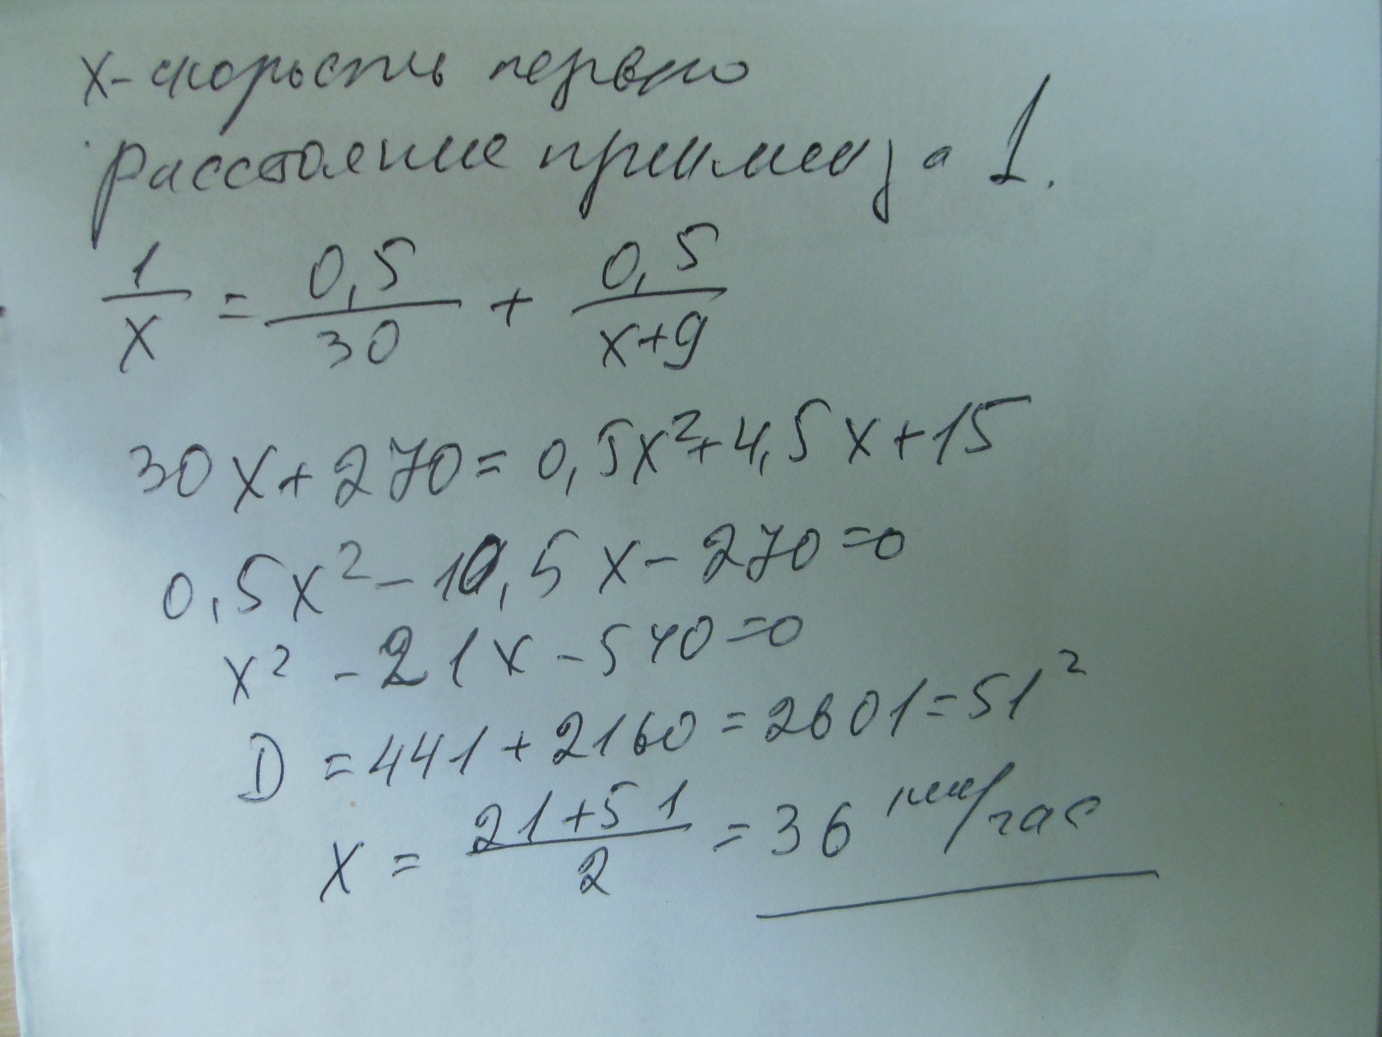 x-скорость первого
Расстояние примем за 1.
1/x = 0,5/30 + 0,5/x+9
30x+270=0,5x²+4,5x+15
0,5x²-10,5x-270=0
x²-21x-540=0
D=441+2160=2601=51²
x=21+51/2=36 км/час